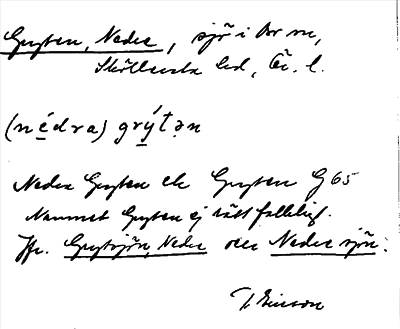 Gryten, Nedre, sjö i Asker sn,
Sköllersta hd, Ör. l.
(nédra) grýtən
Nedre Gryten el. Gryten G 65
Namnet Gryten ej rätt folkligt.
Jfr. Grytsjön, Nedre och Nedre sjön.